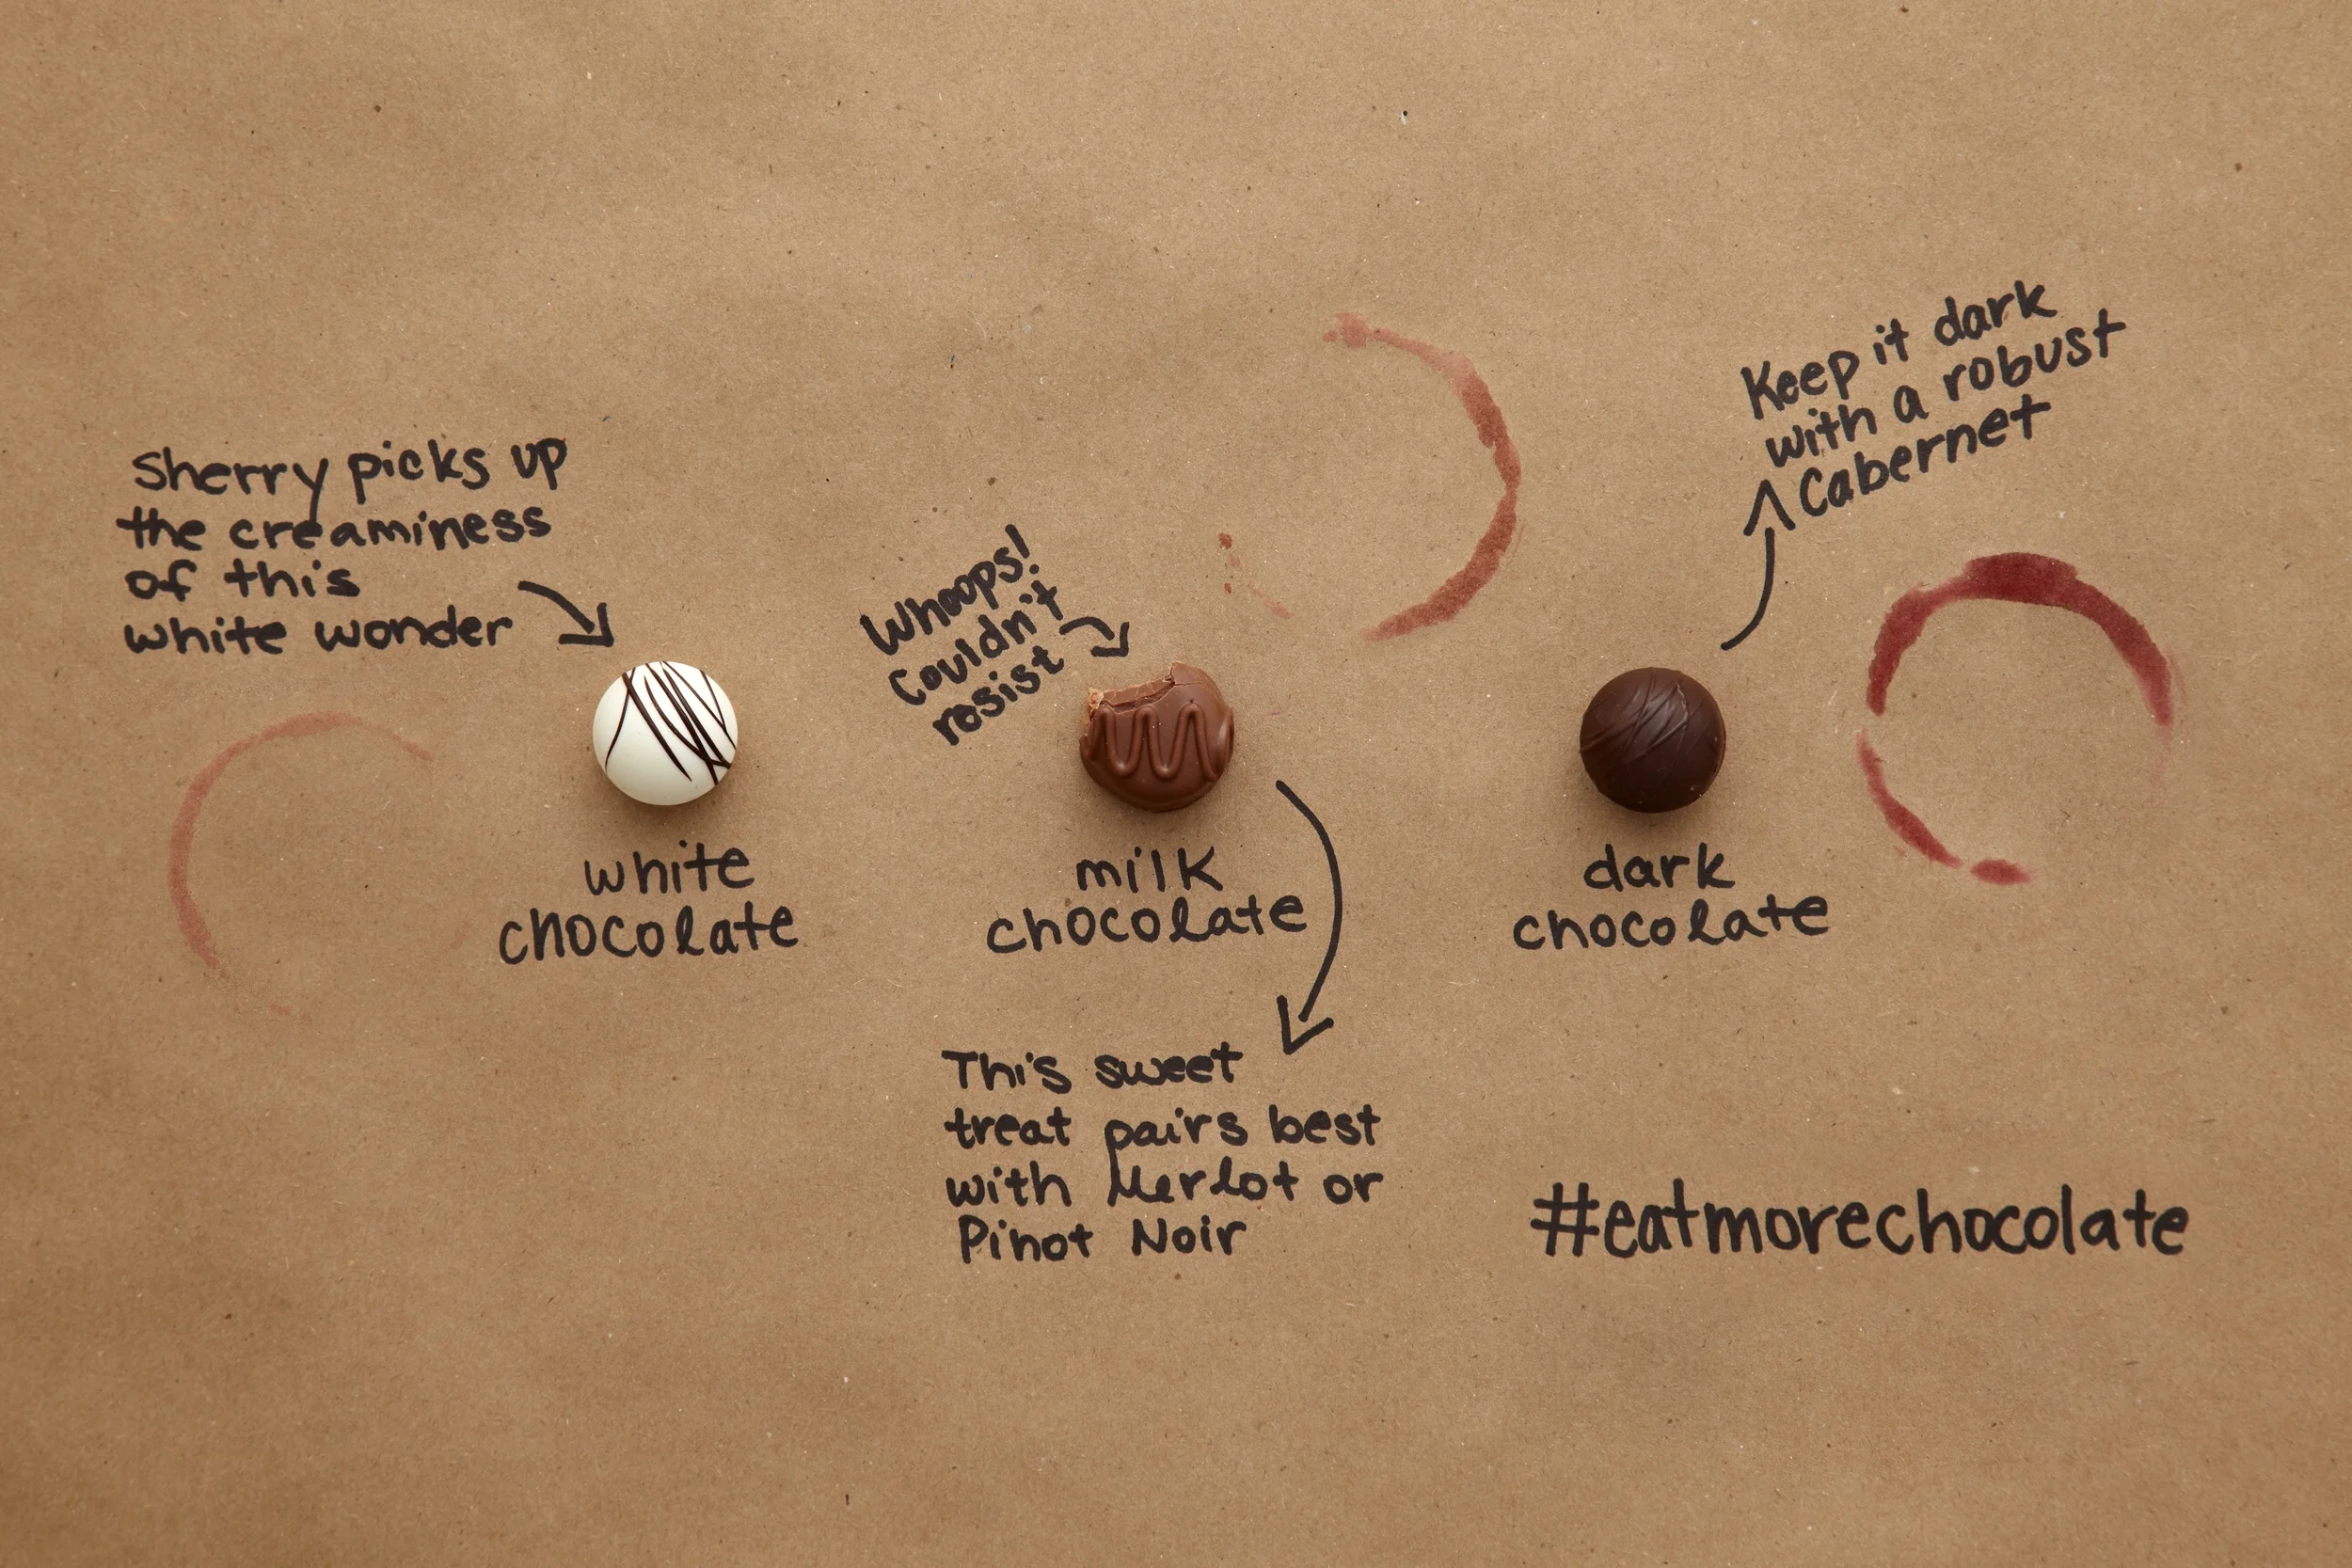 Sherry picks up
the creaminess
of this
white wonder
white
chocolate
Whoops!
Couldn't
resist
milk
chocolate
This sweet
treat pairs best
with Merlot or
Pinot Noir
Keep it dark
with a robust
Cabernet
dark
chocolate
#eatmorechocolate